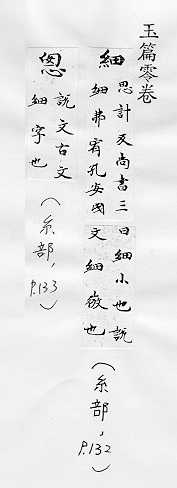 玉篇零卷
細
思計反尚書三
細弗宥孔安國
曰細小也說
文細微也
（糸部，P.132）
悤
說文古文
細字也
（糸部，P.133）